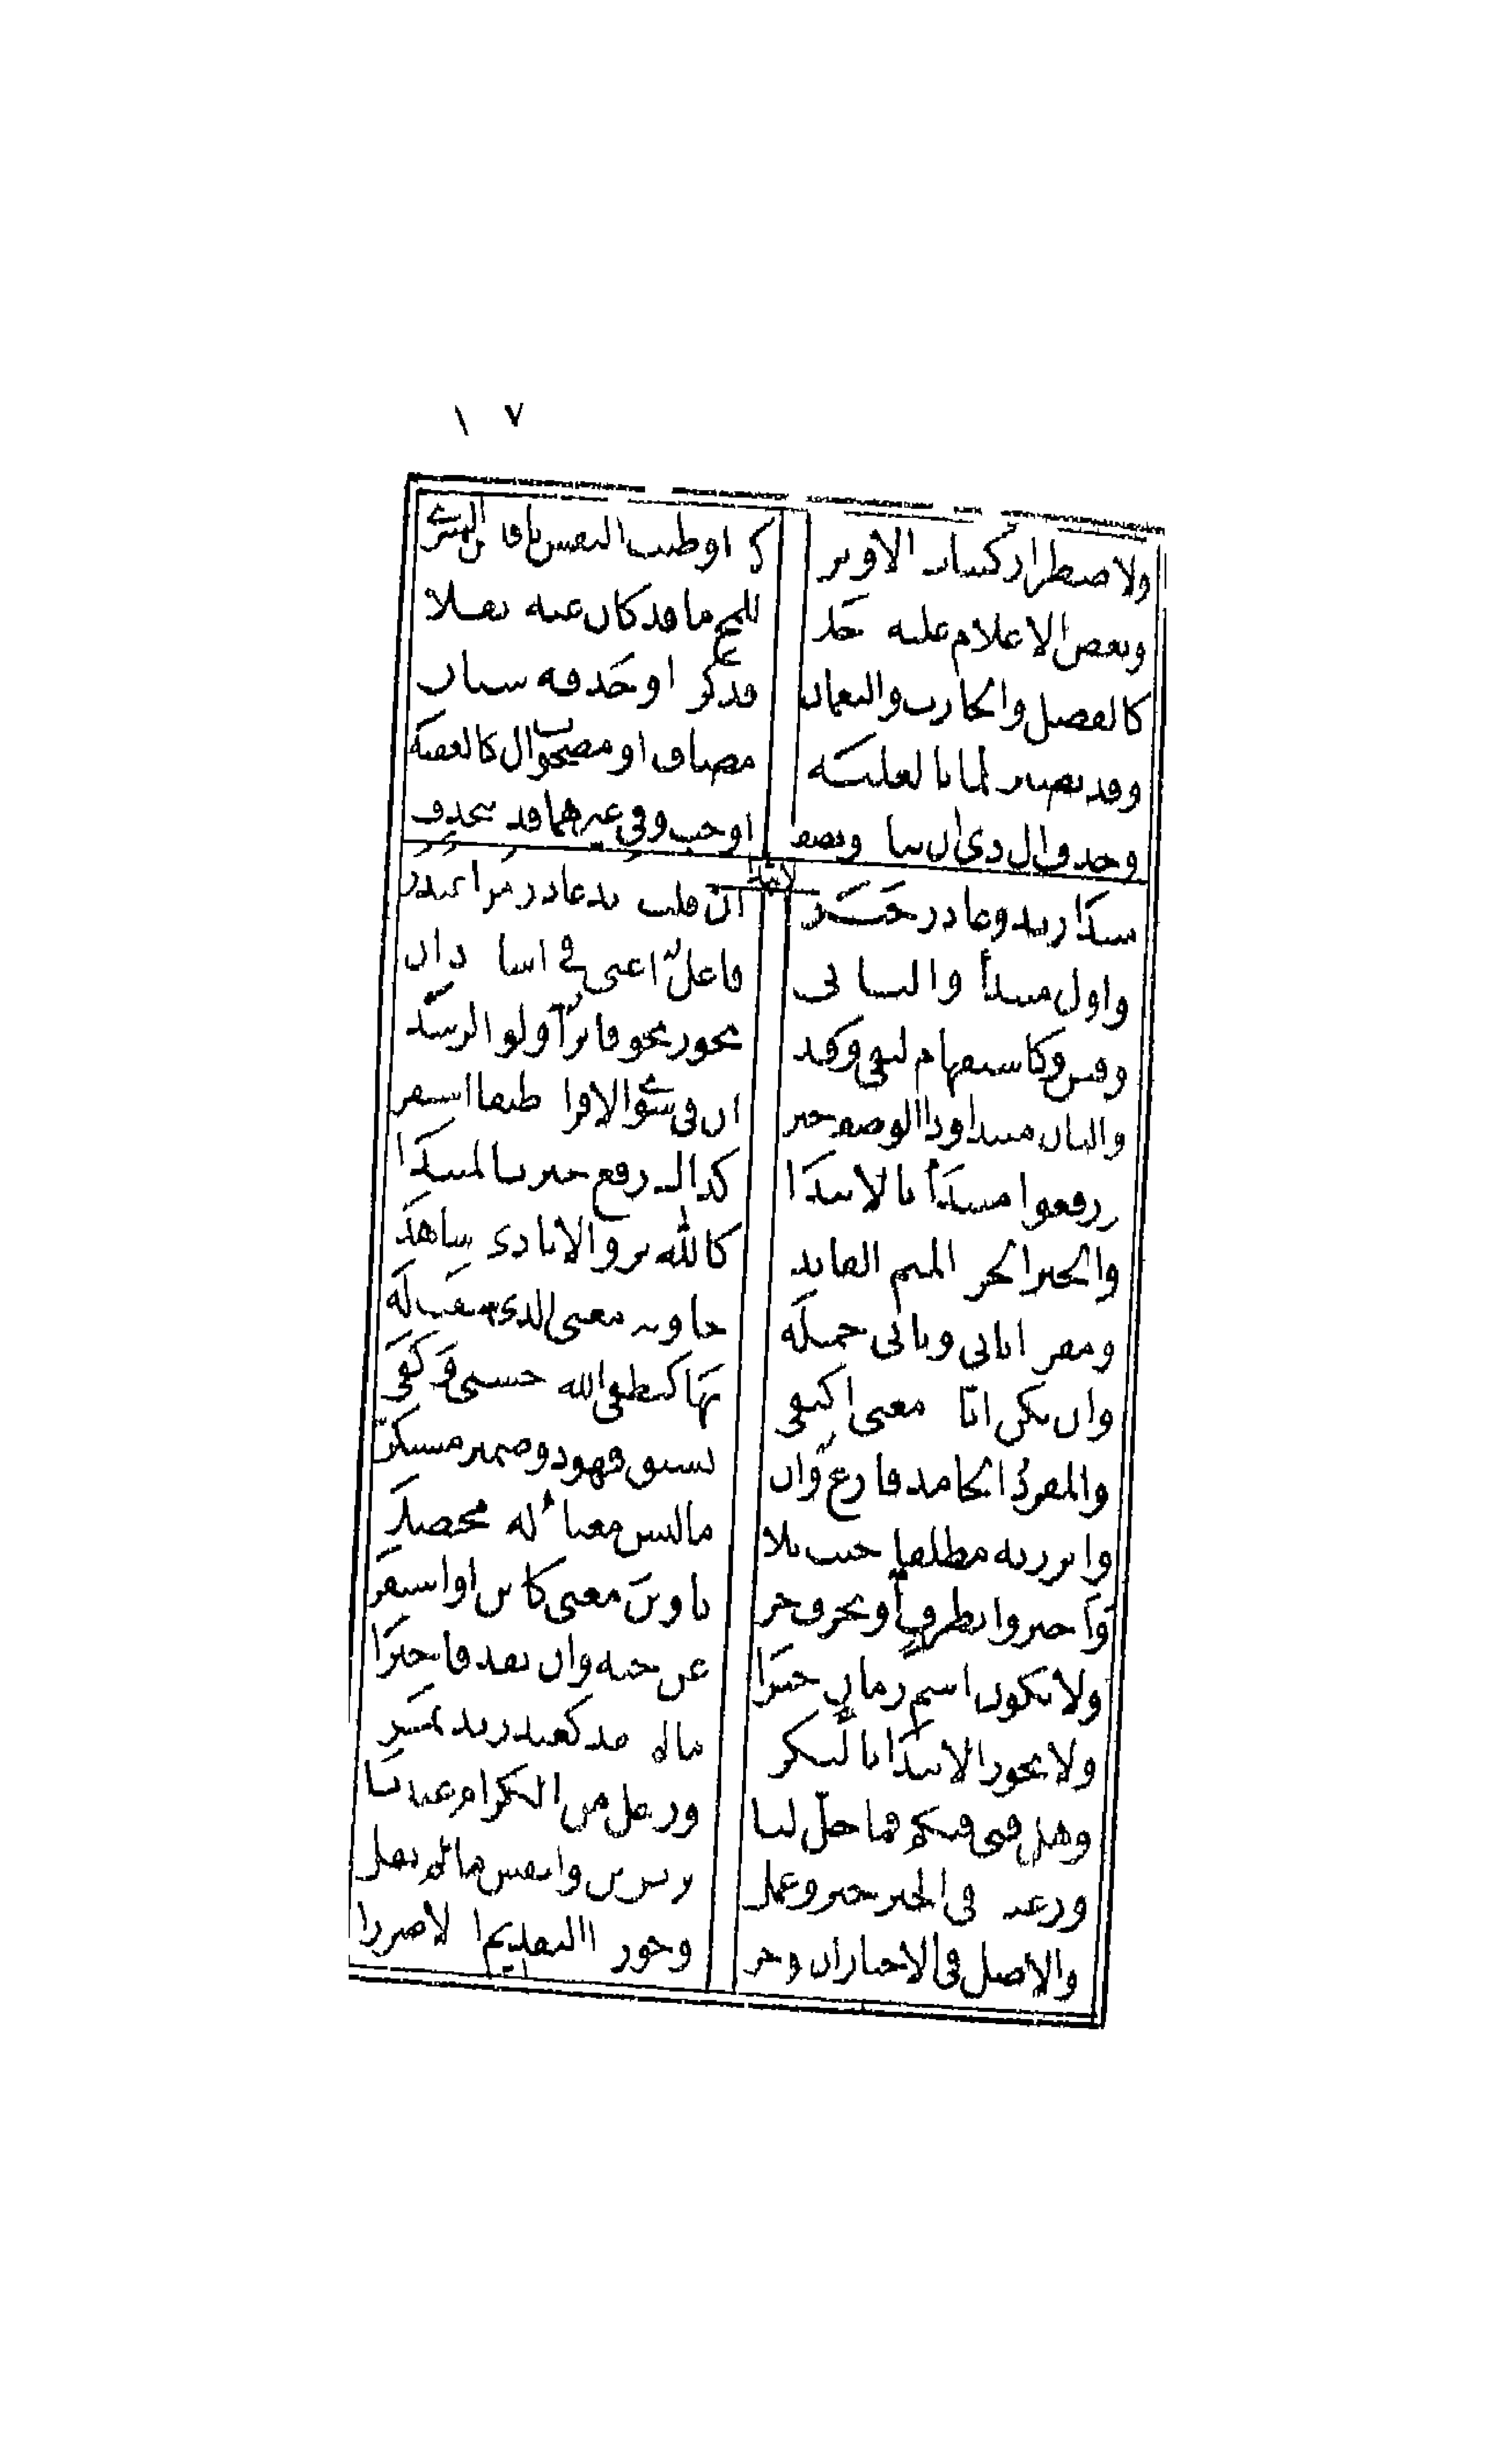 ١٧
ولاضطرار كبنات الاوبر كذا وطبت النفس يا قيس السرى
وبعض الاعلام عليه دخلا للمح ما قد كان عنه نقلا
كالفضل والحارث والنعمان فذكر ذا وحذفه سيان
وقد يصير علما بالغلبه مضاف او مصحوب ال كالعقبه
وحذف ال ذي ان تناد او تضف اوجب وفي غيرهما قد تنحذف
الابتدا
مبتدا زيد وعاذر خبر ان قلت زيد عاذر من اعتذر
واول مبتدأ والثاني فاعل اغنى في اسار ذان
وقس وكاستفهام النفي وقد يجوز نحو فائز اولو الرشد
والثان مبتدا وذا الوصف خبر ان في سوى الافراد طبقا استقر
ورفعوا مبتدأ بالابتدا كذاك رفع خبر بالمبتدا
والخبر الجزء المتم الفايده كالله بر والايادي شاهده
ومفردا ياتي وياتي جمله حاوية معنى الذي سيقت له
وان تكن اياه معنى اكتفى بها كنطقي الله حسبي وكفى
والمفرد الجامد فارغ وان يشتق فهو ذو ضمير مستكن
وابرزنه مطلقا حيث تلا ما ليس معناه له محصلا
واخبروا بظرف او بحرف جر ناوين معنى كائن او استقر
ولا يكون اسم زمان خبرا عن جثة وان يفد فاخبرا
ولا يجوز الابتدا بالنكره ما لم تفد كعند زيد نمره
وهل فتى فيكم فما خل لنا ورجل من الكرام عندنا
ورغبة في الخير خير وعمل بر يزين وليقس ما لم يقل
والاصل في الاخبار ان تؤخرا وجوزوا التقديم اذ لا ضررا